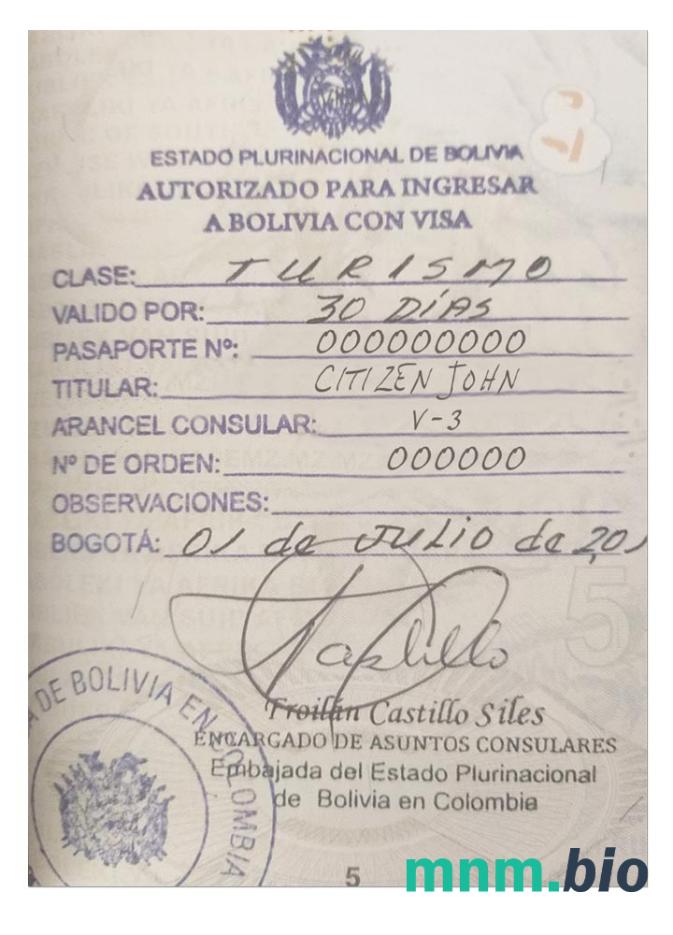 ESTADO PLURINACIONAL DE BOLIVIA
AUTORIZADO PARA INGRESAR
A BOLIVIA CON VISA
CLASE: TURISMO
VALIDO POR: 30 DÍAS
PASAPORTE Nº: 000000000
TITULAR: CITIZEN JOHN
ARANCEL CONSULAR: V-3
Nº DE ORDEN: 000000
OBSERVACIONES:
BOGOTÁ: 01 de JULIO de 201
Castillo
Froilán Castillo Siles
ENCARGADO DE ASUNTOS CONSULARES
Embajada del Estado Plurinacional
de Bolivia en Colombia
DE BOLIVIA EN COLOMBIA
5
5
mnm.bio